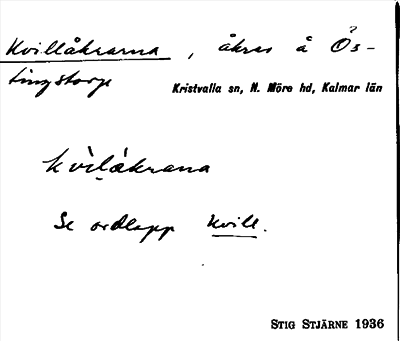 Kvillåkrarna, åkrar å Ös-
tingstorp
Kristvalla sn, N. Möre hd, Kalmar län
kvìlåkrana
Se ordlapp kvill.
STIG STJÄRNE 1936